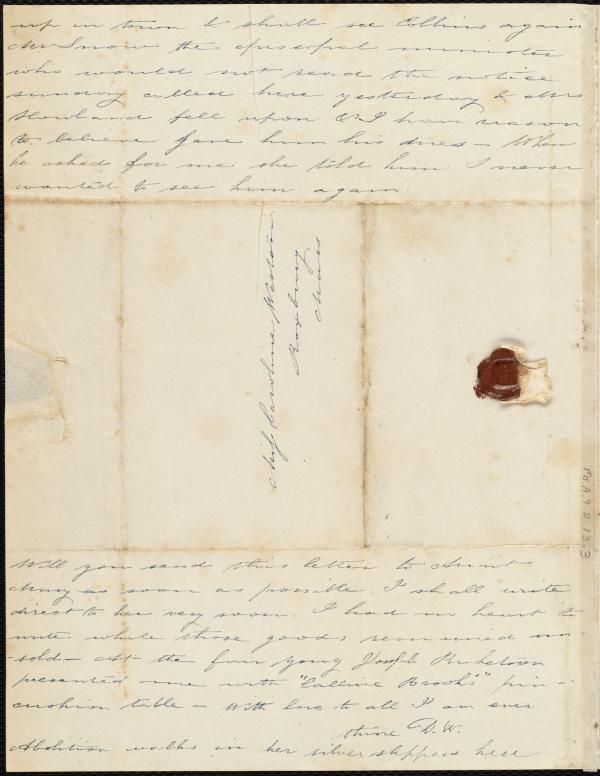 up in town & shall see Collins again
Mr Snow the episcopal minister
who would not read the notice
sunday called here yesterday & Mrs
Howland fell upon & I have reason
to believe gave him his dues – When
he asked for me she told him I never
wanted to see him again.
Miss Caroline Weston.
Roxbury
Mass
Will you send this letter to Aunt
Mary as soon as possible. I shall write
direct to her very soon. I had no heart to
write while those goods remained un-
-sold – At the fair young Joseph Ricketson
presented me with "Calline Brooks" pin-
cushion table – With love to all I am ever
thine D. W.
Abolition walks in her silver slippers here
Ms.A.9.2.13.3